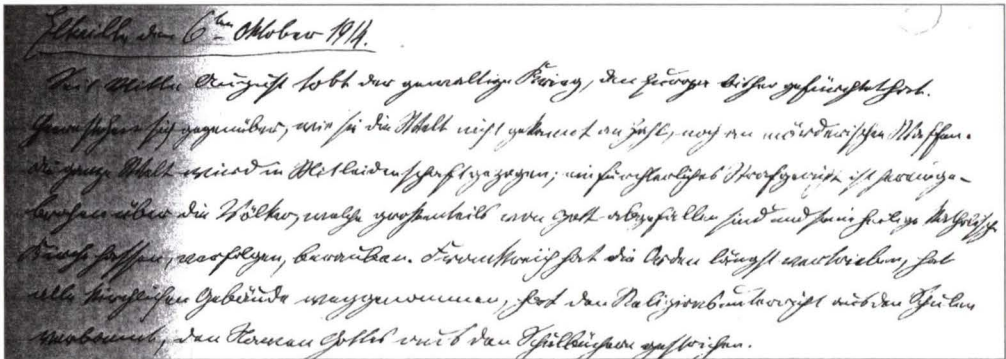 Eltville den 6ten Oktober 1914.
Seit Mitte August tobt der gewaltige Krieg, den Europa bisher gefürchtet hat.
Heere stehen sich gegenüber, wie sie die Welt nicht gekannt an Zahl, noch an mörderischen Waffen.
Die ganze Welt wird in Mitleidenschaft gezogen; ein fürchterliches Strafgericht ist hereinge-
brochen über die Völker, welche großenteils von Gott abgefallen sind und seine heilige katholische
Kirche hassen, verfolgen, berauben. Frankreich hat die Orden längst vertrieben, hat
alle kirchlichen Gebäude weggenommen, hat den Religionsunterricht aus den Schulen
verbannt, den Namen Gottes aus den Schulbüchern gestrichen.